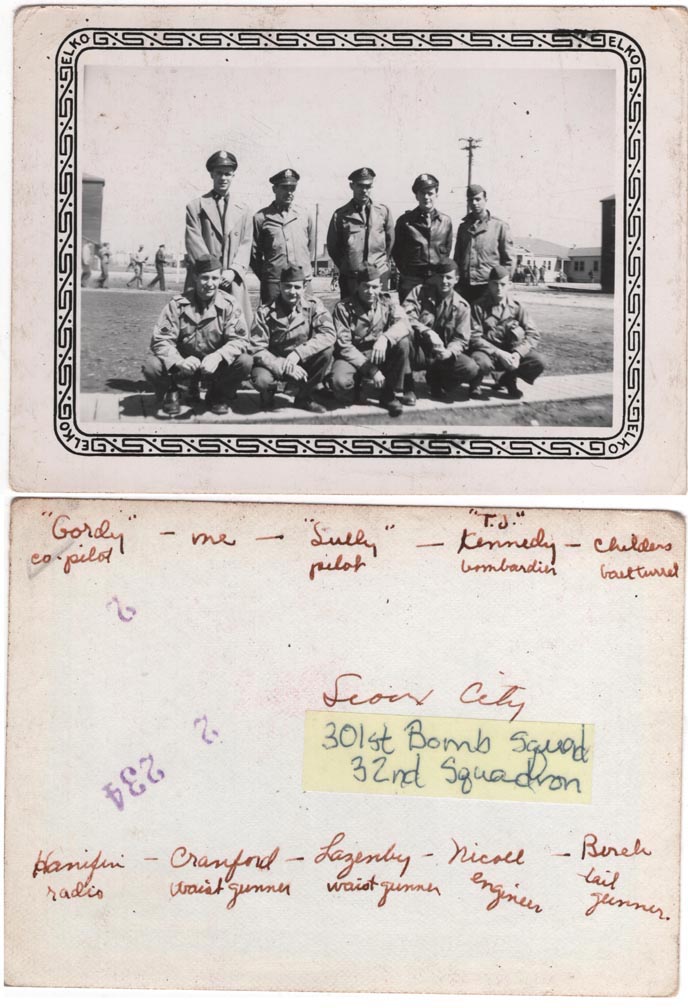 ELKO ELKO
ELKO ELKO
"Gordy" - me - "Sully" - "T.J." Kennedy - Childers
co-pilot pilot bombardier ball turret
2
Sioux City
2
301st Bomb Squad
32nd Squadron
234
Hanifin - Cranford - Lazenby - Nicoll - Birch
radio waist gunner waist gunner engineer tail gunner.